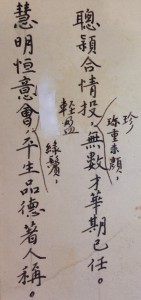 聰穎合情投，無數才華期己任。
珍
珠重車顏，
慧明恒意會，平生品德著人稱。
輕盈
綠鬢，